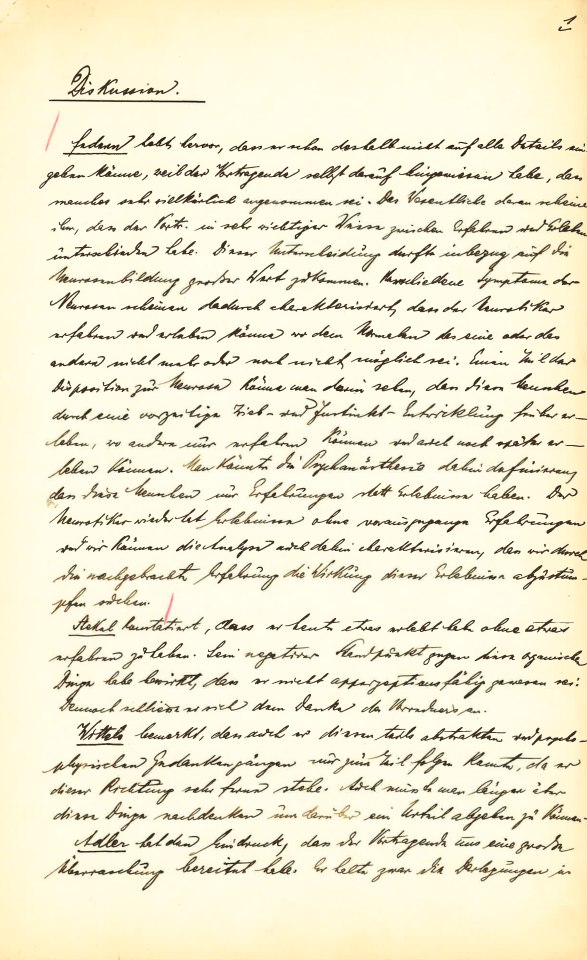 1
Diskussion.
Federn hebt hervor, dass er schon deshalb nicht auf alle Details ein
gehen könne, weil der Vortragende selbst darauf hingewiesen habe, dass
manches sehr willkürlich angenommen sei. Das Wesentliche daran scheine
ihm, dass der Vortr. in sehr wichtiger Weise zwischen Erfahren und Erleben
unterschieden habe. Dieser Unterscheidung dürfte in bezug auf die
Neurosenbildung grosser Wert zukommen. Verschiedene Symptome der
Neurosen scheinen dadurch charakterisiert, dass der Neurotiker
erfahren und erleben könne wo dem Normalen das eine oder das
andere nicht mehr oder noch nicht möglich sei. Einen Teil der
Disposition zur Neurose könne man darin sehen, dass diese Menschen
durch eine vorzeitige Trieb- und Instinkt-Entwicklung früher er-
leben, wo andere nur erfahren können und auch noch später er-
leben können. Man könnte die Psychanästhesie dahin definieren,
dass diese Menschen nur Erfahrungen statt Erlebnisse haben. Der
Neurotiker wiederholt Erlebnisse ohne vorausgegangene Erfahrungen
und wir können die Analyse auch dahin charakterisieren, dass wir durch
die nachgebrachte Erfahrung die Wirkung dieser Erlebnisse abzustum-
pfen suchen.
Stekel konstatiert, dass er heute etwas erlebt habe ohne etwas
erfahren zu haben. Sein negativer Standpunkt gegen diese organischen
Dinge habe bewirkt, dass er nicht apperzeptionsfähig gewesen sei.
Dennoch schliesse er sich dem Danke des Vorredners an.
Wittels bemerkt, dass auch er diesen teils abstrakten und psycho-
physischen Gedankengängen nur zum Teil folgen konnte, da er
dieser Richtung sehr ferne stehe. Auch müsste man länger über
diese Dinge nachdenken um darüber ein Urteil abgeben zu können.
Adler hat den Eindruck, dass der Vortragende uns eine grosse
Überraschung bereitet habe. Er halte zwar die Darlegungen in